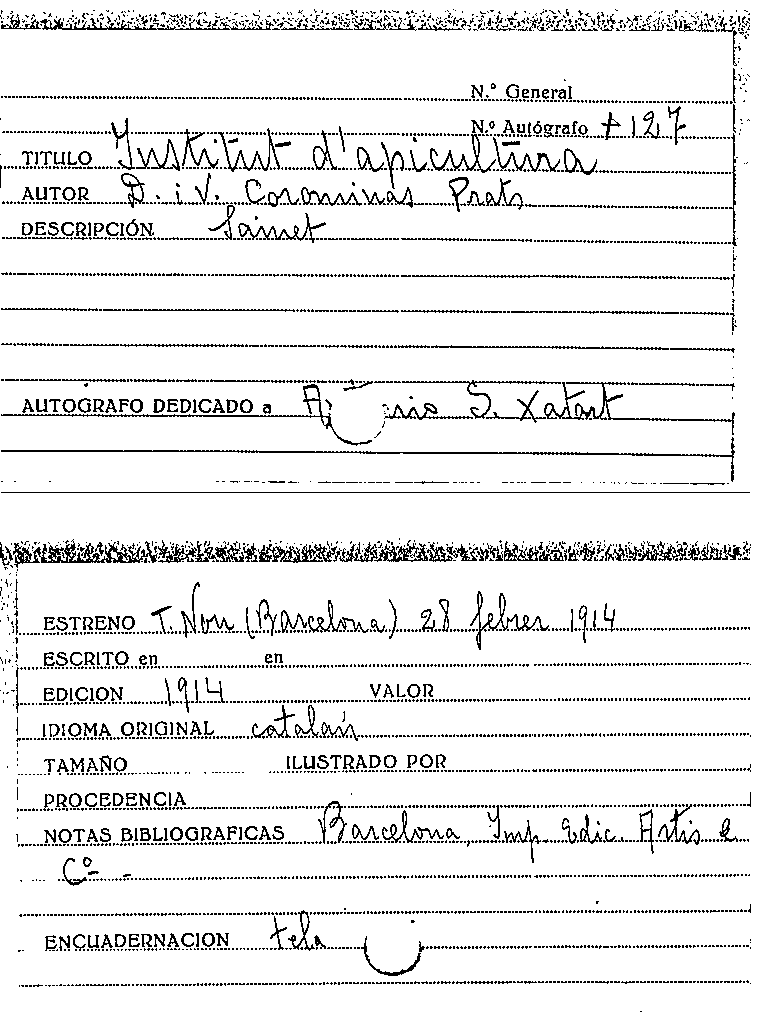 N.º General
N.º Autógrafo + 127
TITULO Institut d'apicultura
AUTOR D. i V. Corominas Prats
DESCRIPCIÓN Sainet
AUTOGRAFO DEDICADO a S. Xatart
ESTRENO T. Nou (Barcelona) 28 febrer 1914
ESCRITO en en
EDICION 1914 VALOR
IDIOMA ORIGINAL catalán
TAMAÑO ILUSTRADO POR
PROCEDENCIA
NOTAS BIBLIOGRAFICAS Barcelona, Imp. Edic. Artis &
Cº -
ENCUADERNACION tela